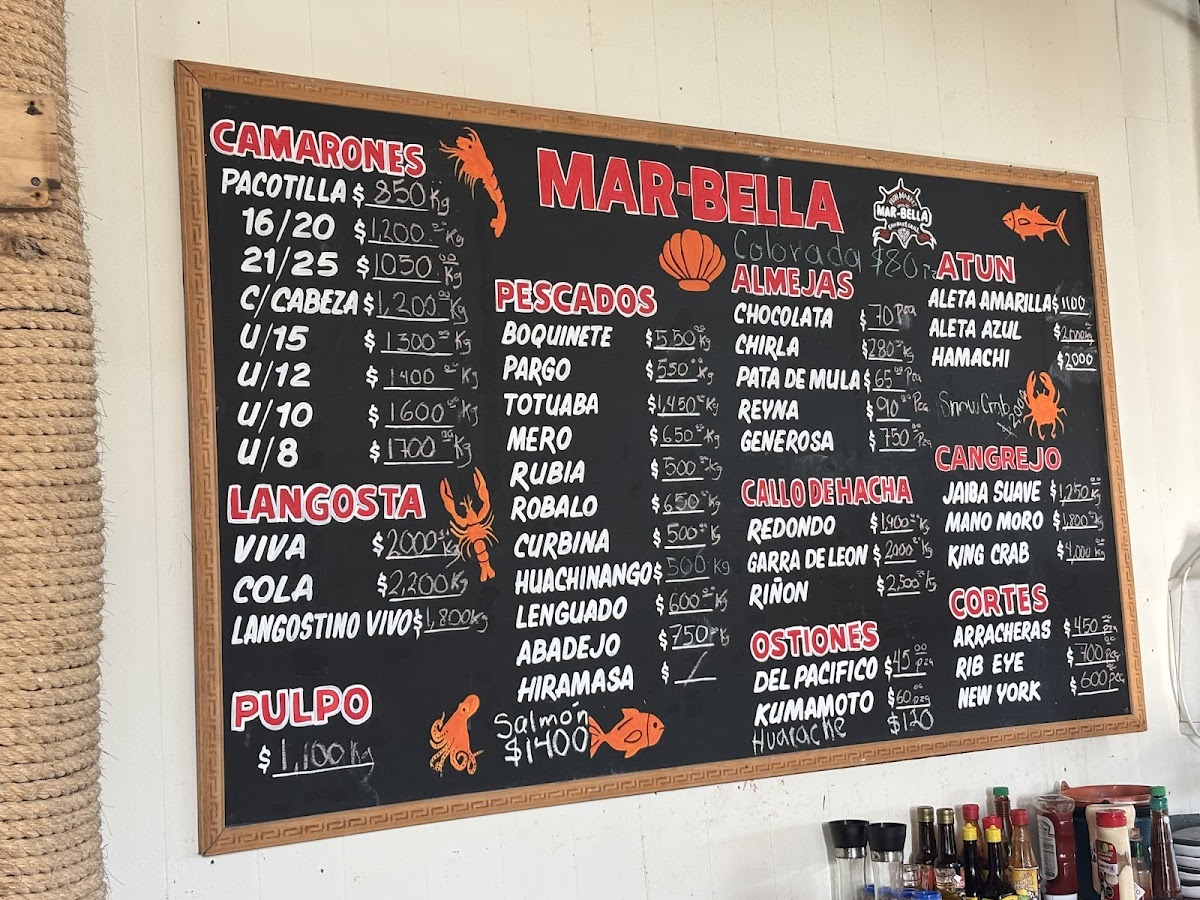 MAR-BELLA
MAR-BELLA
CAMARONES
PACOTILLA $ 850 Kg
16/20 $ 1,200.00 Kg
21/25 $ 1050.00 Kg
C/CABEZA $ 1,200.00 Kg
U/15 $ 1300.00 Kg
U/12 $ 1400.00 Kg
U/10 $ 1600.00 Kg
U/8 $ 1700.00 Kg
LANGOSTA
VIVA $ 2000 Kg
COLA $ 2,200 Kg
LANGOSTINO VIVO $ 1,800 Kg
PULPO
$ 1,100 Kg
PESCADOS
BOQUINETE $ 550.00 Kg
PARGO $ 550.00 Kg
TOTUABA $ 1,450.00 Kg
MERO $ 650.00 Kg
RUBIA $ 500.00 Kg
ROBALO $ 650.00 Kg
CURBINA $ 500.00 Kg
HUACHINANGO $ 500 Kg
LENGUADO $ 600.00 Kg
ABADEJO $ 750 Kg
HIRAMASA $ /
Salmón
$1400
Colorada $80
ALMEJAS
CHOCOLATA $ 70 Pca
CHIRLA $ 280 Kg
PATA DE MULA $ 65.00 Pca
REYNA $ 90.00 Pca
GENEROSA $ 750.00 Pca
CALLO DE HACHA
REDONDO $ 1,900.00 Kg
GARRA DE LEON $ 2000.00 Kg
RIÑON $ 2,500.00 Kg
OSTIONES
DEL PACIFICO $ 45.00 pza
KUMAMOTO $ 60.00 pza
Huarache $ 120
ATUN
ALETA AMARILLA $ 1100
ALETA AZUL $ 2,000 Kg
HAMACHI $ 2000
Snow Crab
CANGREJO
JAIBA SUAVE $ 1,250.00 Kg
MANO MORO $ 1,800.00 Kg
KING CRAB $ 4,000.00 Kg
CORTES
ARRACHERAS $ 450.00 pza
RIB EYE $ 700.00 pca
NEW YORK $ 600.00 pca